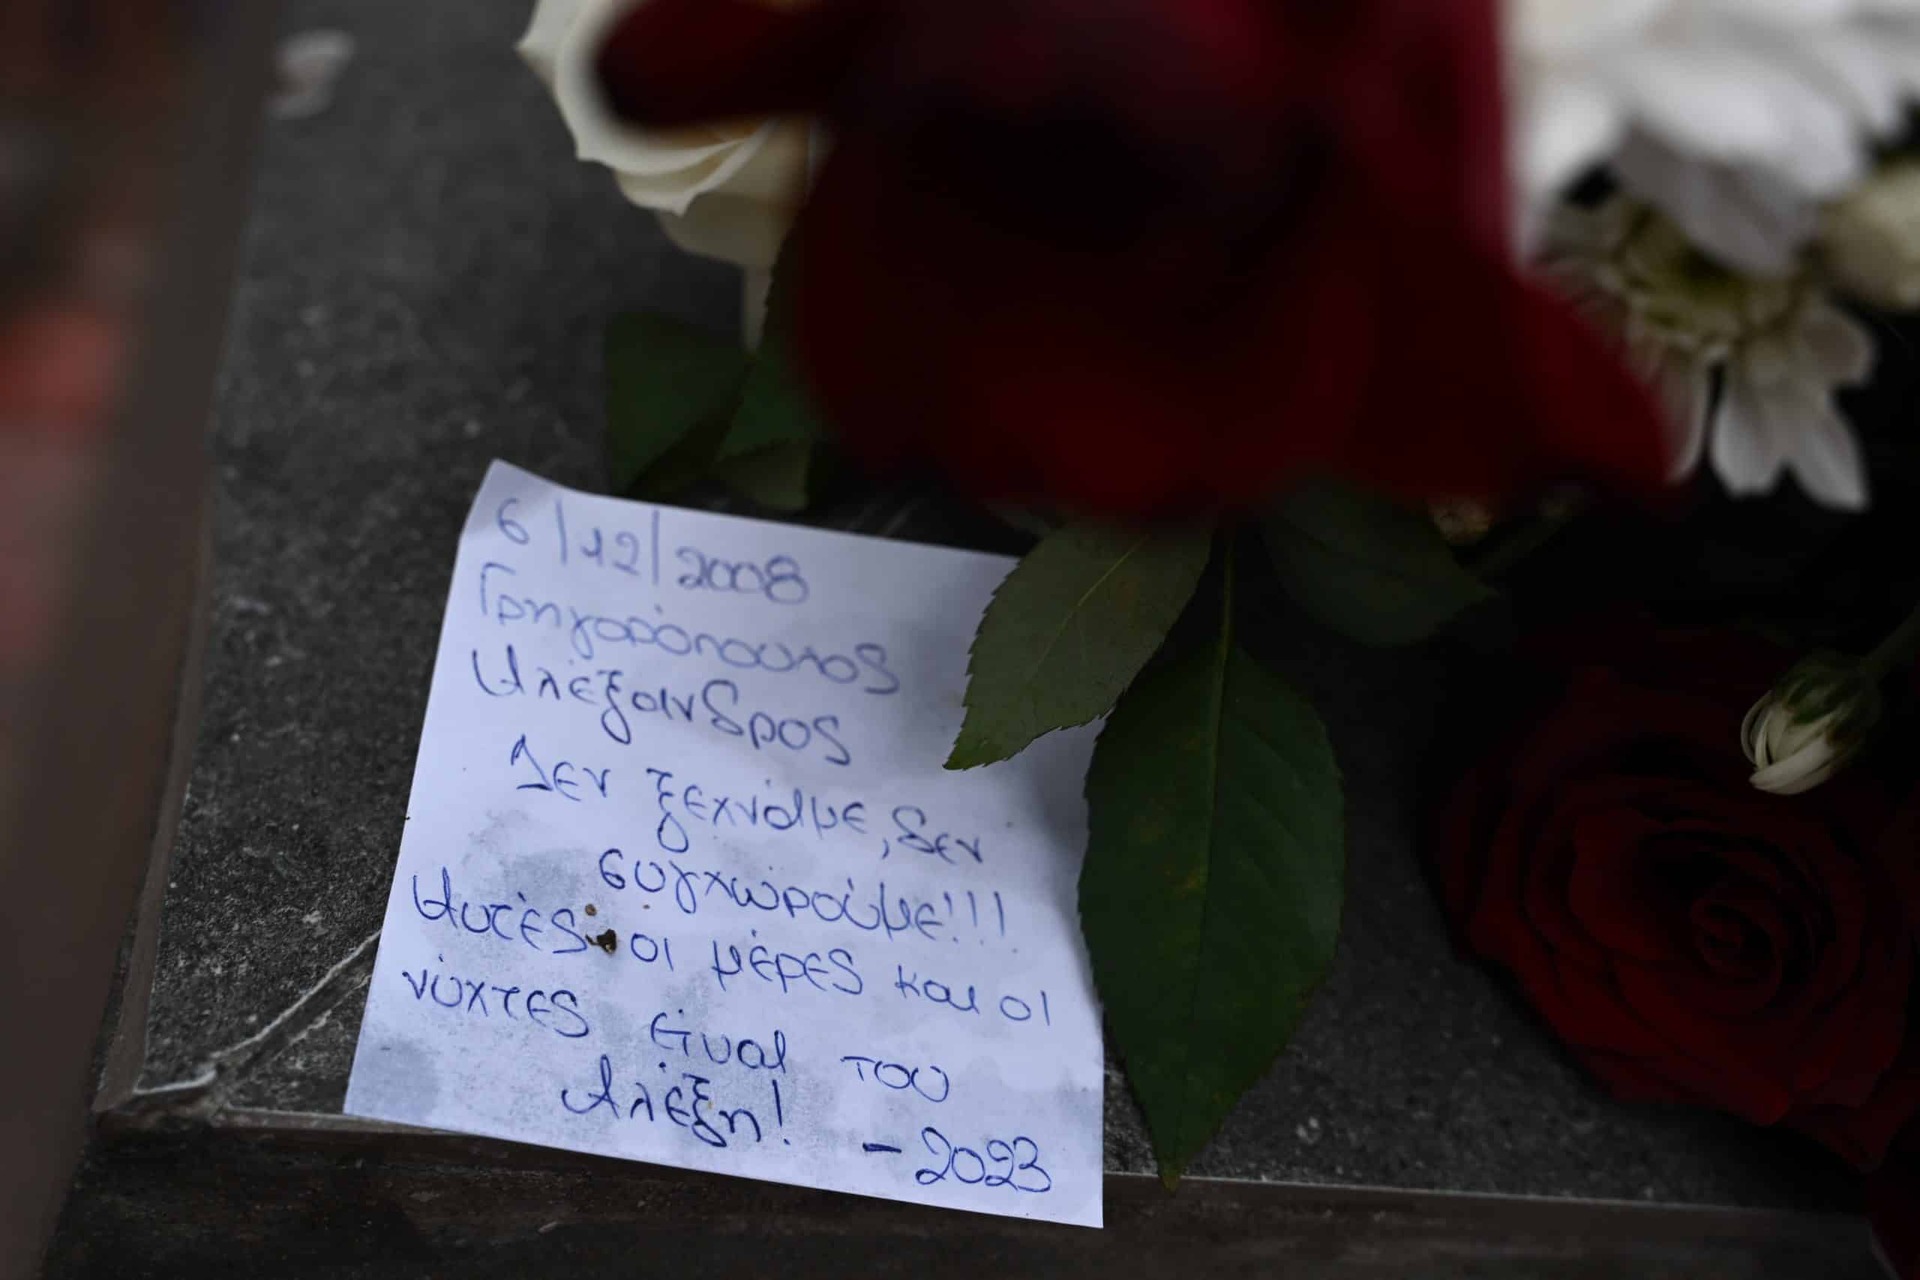 6/12/2008
Γρηγορόπουλος
Αλέξανδρος
Δεν ξεχνάμε, δεν
συγχωρούμε!!!
Αυτές οι μέρες και οι
νύχτες είναι του
Αλέξη! - 2023